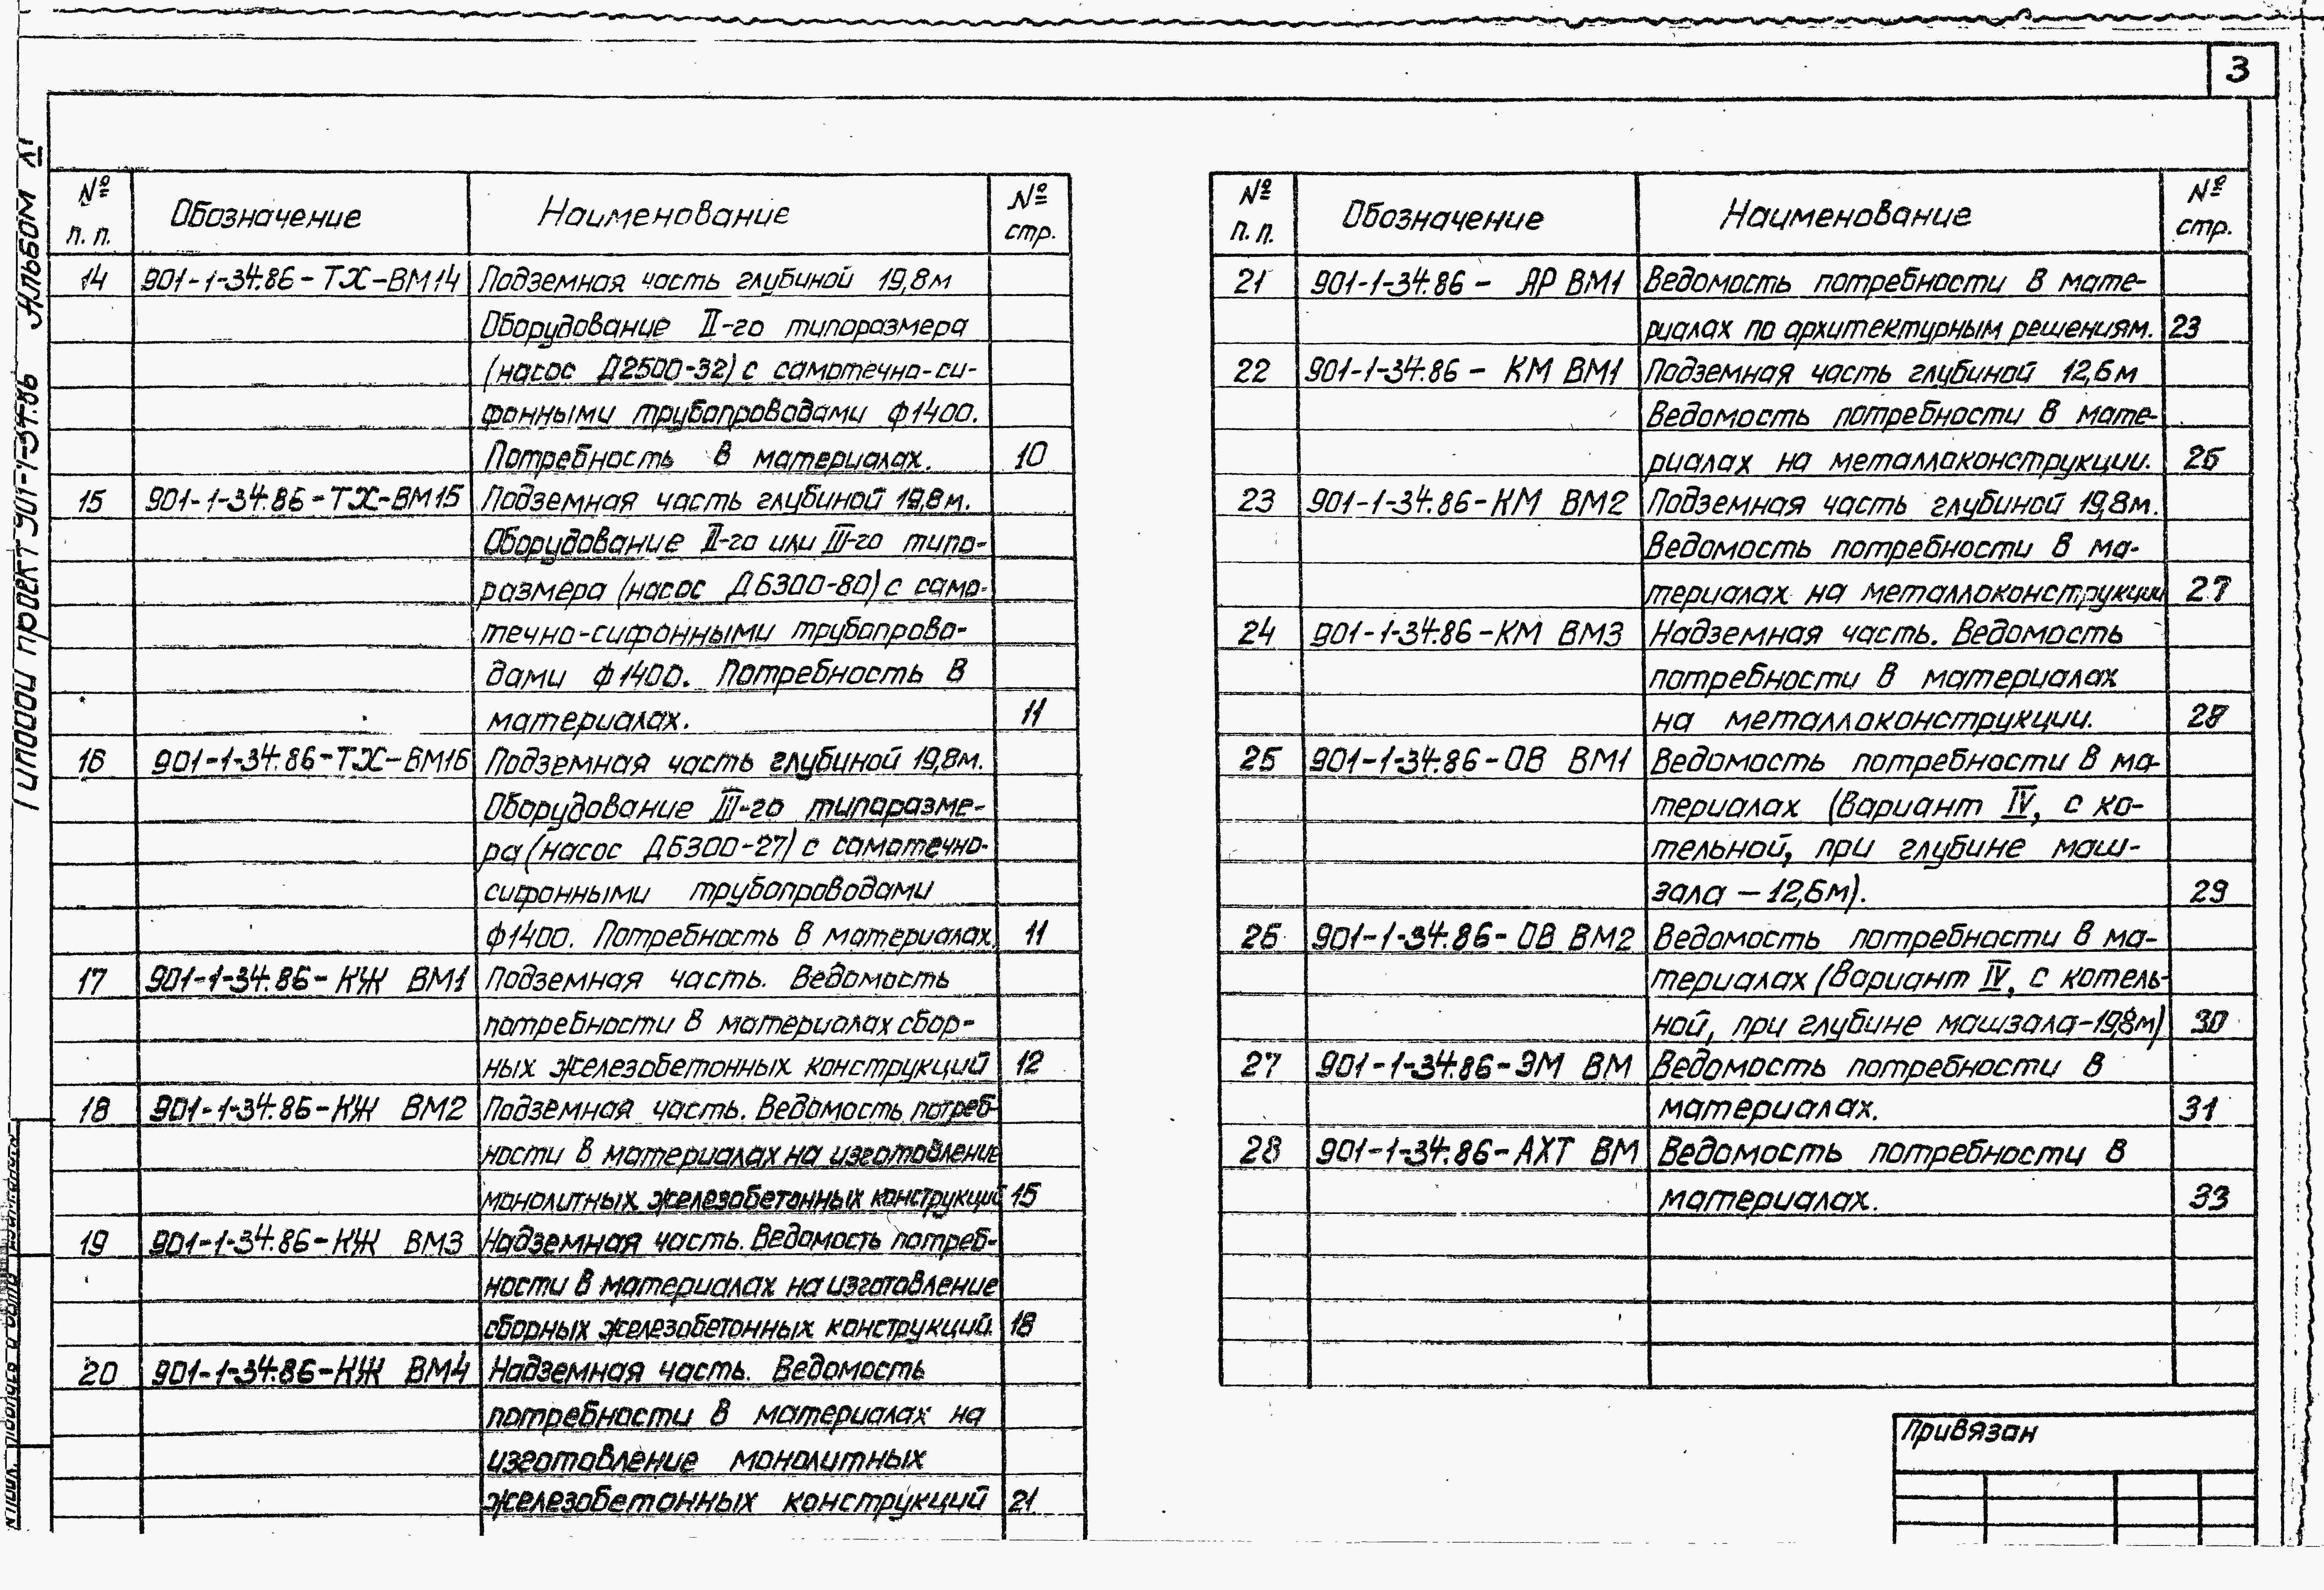 3
Типовой проект 901-1-34.86 Альбом XI
№ п.п. Обозначение Наименование № стр.
14 901-1-34.86-ТХ-ВМ14 Подземная часть глубиной 19,8м
Оборудование II-го типоразмера
(насос Д2500-32) с самотечно-си-
фонными трубопроводами ф1400.
Потребность в материалах. 10
15 901-1-34.86-ТХ-ВМ15 Подземная часть глубиной 19,8м.
Оборудование II-го или III-го типо-
размера (насос Д6300-80) с само-
течно-сифонными трубопрово-
дами ф1400. Потребность в
материалах. 11
16 901-1-34.86-ТХ-ВМ16 Подземная часть глубиной 19,8м.
Оборудование III-го типоразме-
ра (насос Д6300-27) с самотечно-
сифонными трубопроводами
ф1400. Потребность в материалах. 11
17 901-1-34.86-КЖ ВМ1 Подземная часть. Ведомость
потребности в материалах сбор-
ных железобетонных конструкций 12
18 901-1-34.86-КЖ ВМ2 Подземная часть. Ведомость потреб-
ности в материалах на изготовление
монолитных железобетонных конструкций 15
19 901-1-34.86-КЖ ВМ3 Надземная часть. Ведомость потреб-
ности в материалах на изготовление
сборных железобетонных конструкций. 18
20 901-1-34.86-КЖ ВМ4 Надземная часть. Ведомость
потребности в материалах на
изготовление монолитных
железобетонных конструкций 21
№ п.п. Обозначение Наименование № стр.
21 901-1-34.86- АР ВМ1 Ведомость потребности в мате-
риалах по архитектурным решениям. 23
22 901-1-34.86- КМ ВМ1 Подземная часть глубиной 12,6м
Ведомость потребности в мате-
риалах на металлоконструкции. 26
23 901-1-34.86-КМ ВМ2 Подземная часть глубиной 19,8м.
Ведомость потребности в ма-
териалах на металлоконструкции 27
24 901-1-34.86-КМ ВМ3 Надземная часть. Ведомость
потребности в материалах
на металлоконструкции. 28
25 901-1-34.86-ОВ ВМ1 Ведомость потребности в ма-
териалах (вариант IV, с ко-
тельной, при глубине маш-
зала - 12,6м). 29
26 901-1-34.86-ОВ ВМ2 Ведомость потребности в ма-
териалах (вариант IV, с котель-
ной, при глубине машзала-19,8м) 30
27 901-1-34.86-ЭМ ВМ Ведомость потребности в
материалах. 31
28 901-1-34.86-АХТ ВМ Ведомость потребности в
материалах. 33
Привязан